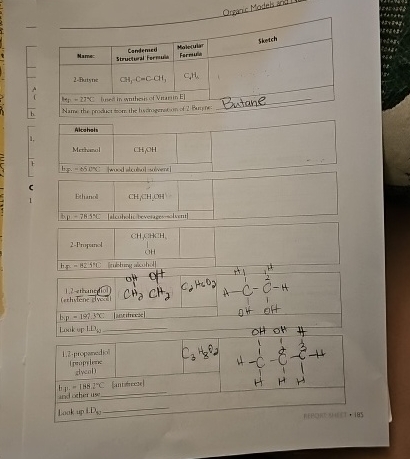 Organic Models and
Name:
Condensed Structural Formula
Molecular Formula
Sketch
2-Butyne
CH₃-C≡C-CH₃
C₄H₆
b.p. = 27°C (used in synthesis of Vitamin E)
Name the product from the hydrogenation of 2-Butyne. Butane
Alcohols
Methanol
CH₃OH
b.p. = 65.0°C (wood alcohol-solvent)
Ethanol
CH₃CH₂OH
b.p. = 78.5°C (alcoholic beverages-solvent)
2-Propanol
CH₃CHCH₃
|
OH
b.p. = 82.5°C (rubbing alcohol)
1,2-ethanediol
(ethylene glycol)
OH OH
CH₂ CH₂
C₂H₆O₂
H H
H-C-C-H
OH OH
b.p. = 197.3°C (antifreeze)
Look up LD₅₀
1,2-propanediol
(propylene
glycol)
C₃H₈O₂
OH OH H
H-C-C-C-H
H H H
b.p. = 188.2°C (antifreeze)
and other use
Look up LD₅₀